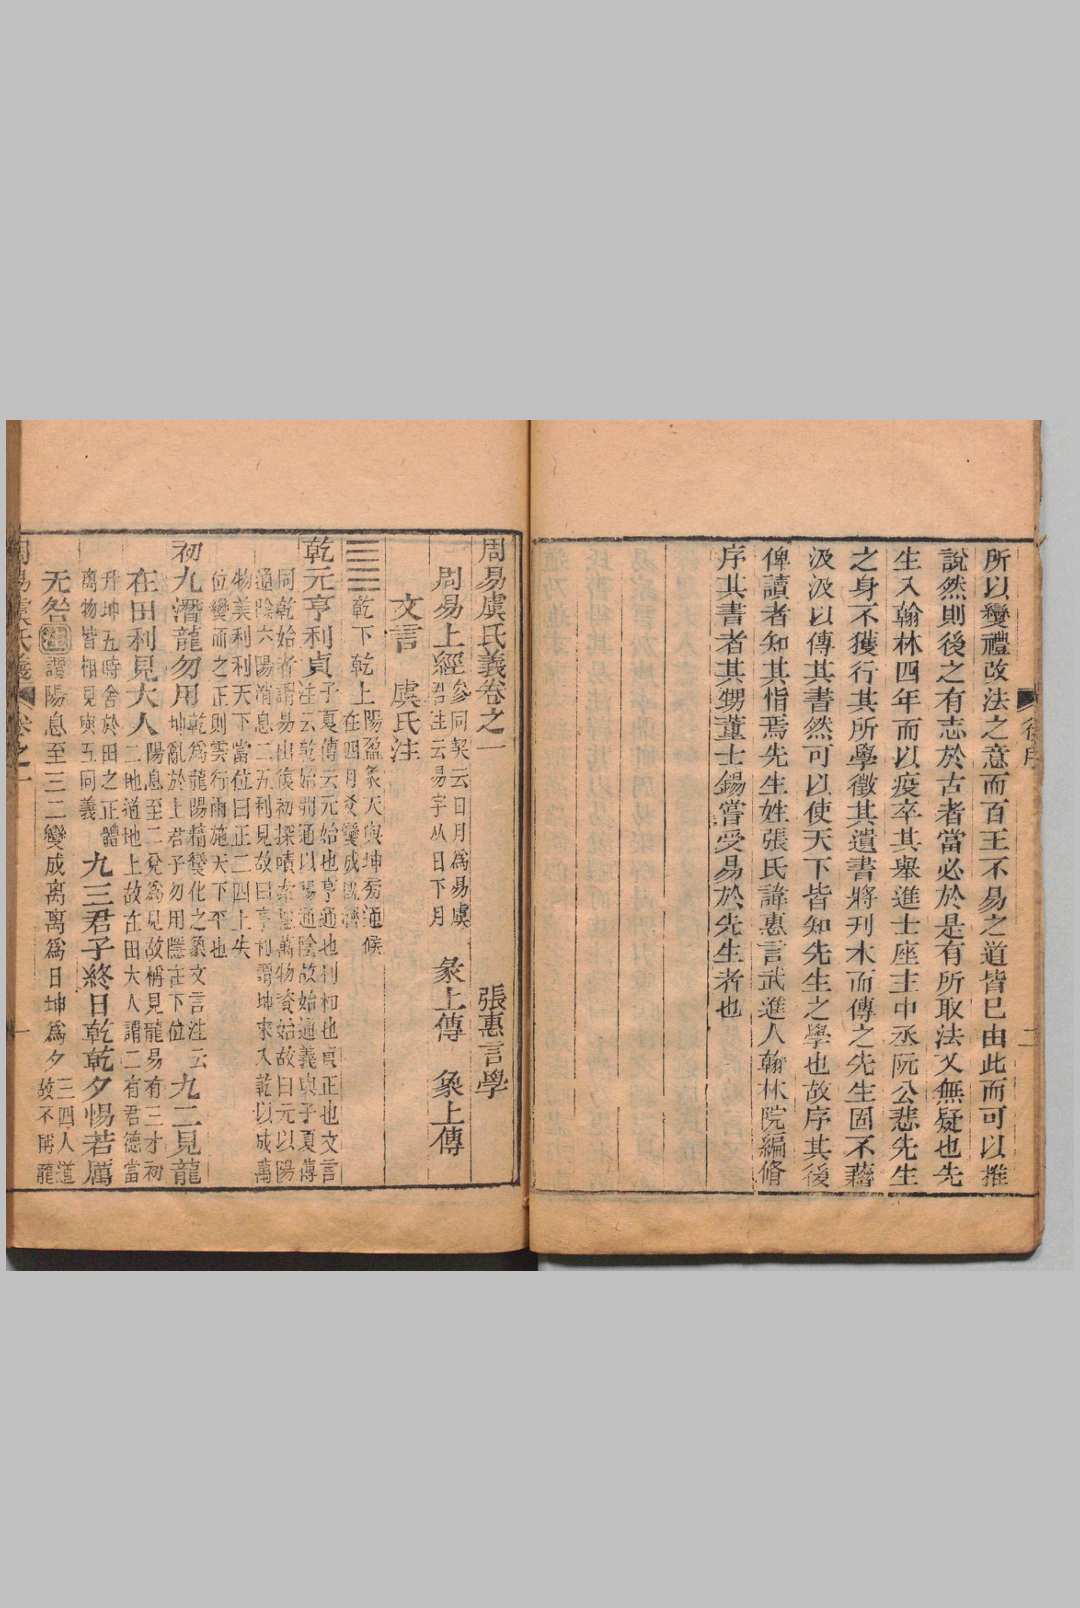 所以變禮改法之意而百王不易之道皆巳由此而可以推
說然則後之有志於古者當必於是有所取法又無疑也先
生入翰林四年而以疫卒其舉進士座主中丞阮公悲先生
之身不獲行其所學徵其遺書將刋木而傳之先生固不藉
汲汲以傳其書然可以使天下皆知先生之學也故序其後
俾讀者知其恉焉先生姓張氏諱惠言武進人翰林院編脩
序其書者其甥董士錫嘗受易於先生者也
後序
二
周易虞氏義卷之一
張惠言學
周易上經
參同契云日月爲易虞
注云易字从日下月
彖上傳 象上傳
文言 虞氏注
乾下乾上
陽盈象天與坤旁通候
在四月爻變成旣濟
乾元亨利貞
子夏傳云元始也亨通也利和也貞正也文言
注云乾始開通以陽通陰故始通義與子夏傳
同乾始者謂易出復初探嘖索隱萬物資始故曰元以陽
通陰六陽消息二五利見故曰亨利謂坤來入乾以成萬
物美利利天下當位曰正二四上失
位變而之正則雲行雨施天下平也
初九潛龍勿用
乾爲龍陽精變化之象文言注云
坤亂於上君子勿用隱在下位
九二見龍
在田利見大人
陽息至二兌爲見故稱見龍易有三才初
二地道地上故在田大人謂二有君德當
升坤五時舍於田之正體
離物皆相見與五同義
九三君子終日乾乾夕惕若厲
无咎
注
謂陽息至三二變成离离爲日坤爲夕
三四人道
故不稱龍
周易虞氏義 卷之一
一